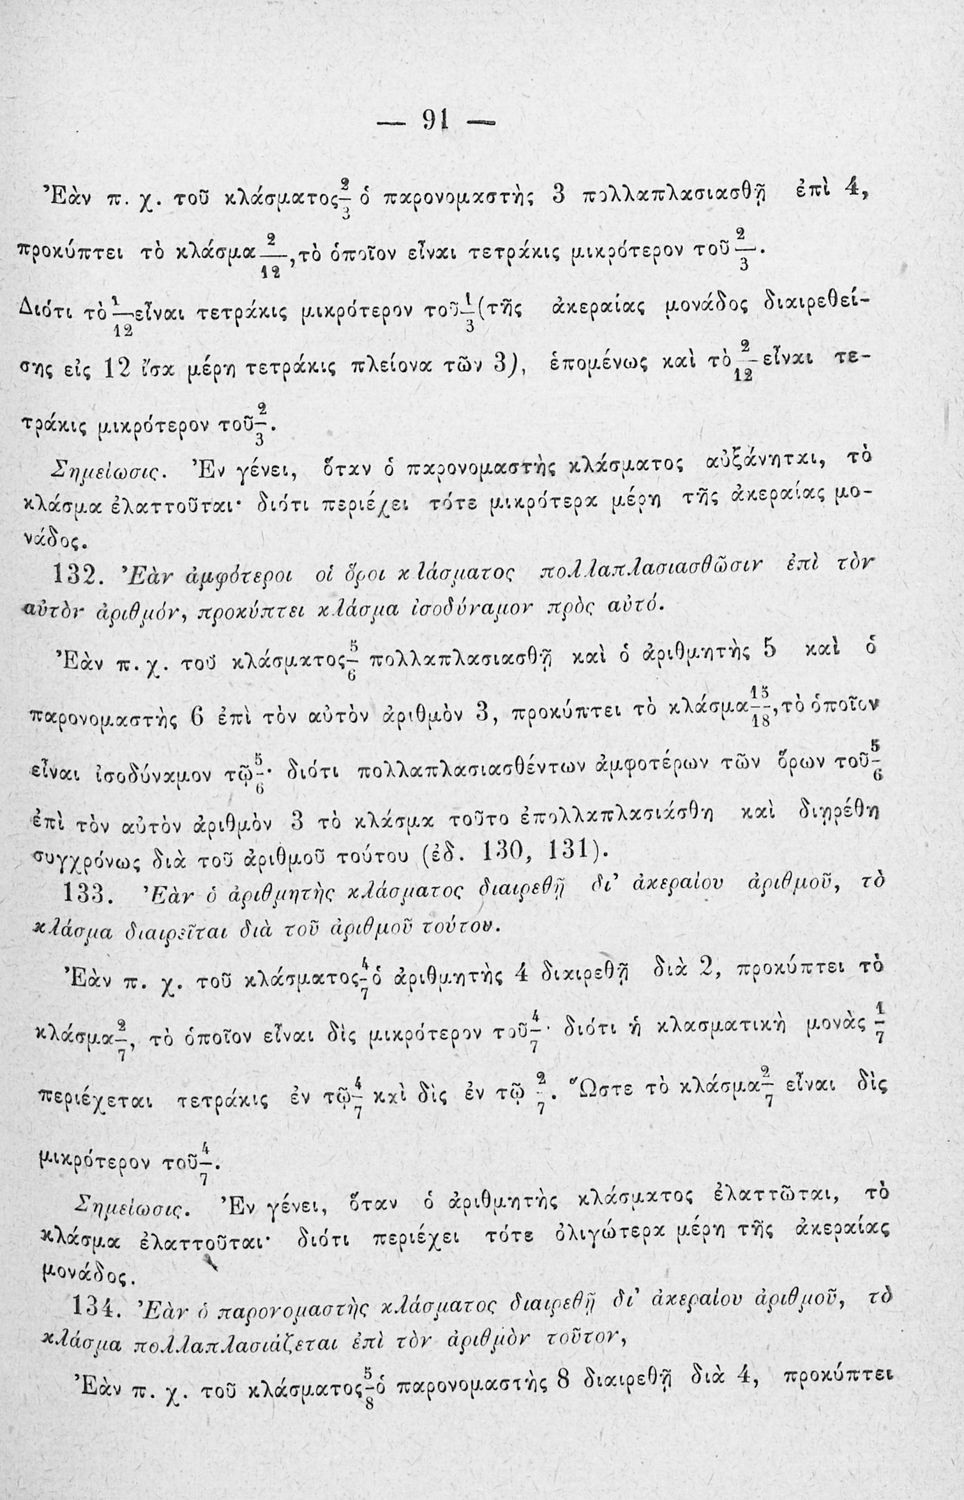 — 91 —
Ἐὰν π. χ. τοῦ κλάσματος 2/3 ὁ παρονομαστὴς 3 πολλαπλασιασθῇ ἐπὶ 4,
προκύπτει τὸ κλάσμα 2/12, τὸ ὁποῖον εἶναι τετράκις μικρότερον τοῦ 2/3.
Διότι τὸ 1/12 εἶναι τετράκις μικρότερον τοῦ 1/3 (τῆς ἀκεραίας μονάδος διαιρεθεί-
σης εἰς 12 ἴσα μέρη τετράκις πλείονα τῶν 3), ἑπομένως καὶ τὸ 2/12 εἶναι τε-
τράκις μικρότερον τοῦ 2/3.
Σημείωσις. Ἐν γένει, ὅταν ὁ παρονομαστὴς κλάσματος αὐξάνηται, τὸ
κλάσμα ἐλαττοῦται· διότι περιέχει τότε μικρότερα μέρη τῆς ἀκεραίας μο-
νάδος.
132. Ἐὰν ἀμφότεροι οἱ ὅροι κλάσματος πολλαπλασιασθῶσιν ἐπὶ τὸν
αὐτὸν ἀριθμόν, προκύπτει κλάσμα ἰσοδύναμον πρὸς αὐτό.
Ἐὰν π. χ. τοῦ κλάσματος 5/6 πολλαπλασιασθῇ καὶ ὁ ἀριθμητὴς 5 καὶ ὁ
παρονομαστὴς 6 ἐπὶ τὸν αὐτὸν ἀριθμὸν 3, προκύπτει τὸ κλάσμα 15/18, τὸ ὁποῖον
εἶναι ἰσοδύναμον τῷ 5/6· διότι πολλαπλασιασθέντων ἀμφοτέρων τῶν ὅρων τοῦ 5/6
ἐπὶ τὸν αὐτὸν ἀριθμὸν 3 τὸ κλάσμα τοῦτο ἐπολλαπλασιάσθη καὶ διῃρέθη
συγχρόνως διὰ τοῦ ἀριθμοῦ τούτου (ἐδ. 130, 131).
133. Ἐὰν ὁ ἀριθμητὴς κλάσματος διαιρεθῇ δι' ἀκεραίου ἀριθμοῦ, τὸ
κλάσμα διαιρεῖται διὰ τοῦ ἀριθμοῦ τούτου.
Ἐὰν π. χ. τοῦ κλάσματος 4/7 ὁ ἀριθμητὴς 4 διαιρεθῇ διὰ 2, προκύπτει τὸ
κλάσμα 2/7, τὸ ὁποῖον εἶναι δὶς μικρότερον τοῦ 4/7· διότι ἡ κλασματικὴ μονὰς 1/7
περιέχεται τετράκις ἐν τῷ 4/7 καὶ δὶς ἐν τῷ 2/7. Ὥστε τὸ κλάσμα 2/7 εἶναι δὶς
μικρότερον τοῦ 4/7.
Σημείωσις. Ἐν γένει, ὅταν ὁ ἀριθμητὴς κλάσματος ἐλαττῶται, τὸ
κλάσμα ἐλαττοῦται· διότι περιέχει τότε ὀλιγώτερα μέρη τῆς ἀκεραίας
μονάδος.
134. Ἐὰν ὁ παρονομαστὴς κλάσματος διαιρεθῇ δι' ἀκεραίου ἀριθμοῦ, τὸ
κλάσμα πολλαπλασιάζεται ἐπὶ τὸν ἀριθμὸν τοῦτον,
Ἐὰν π. χ. τοῦ κλάσματος 5/8 ὁ παρονομαστὴς 8 διαιρεθῇ διὰ 4, προκύπτει